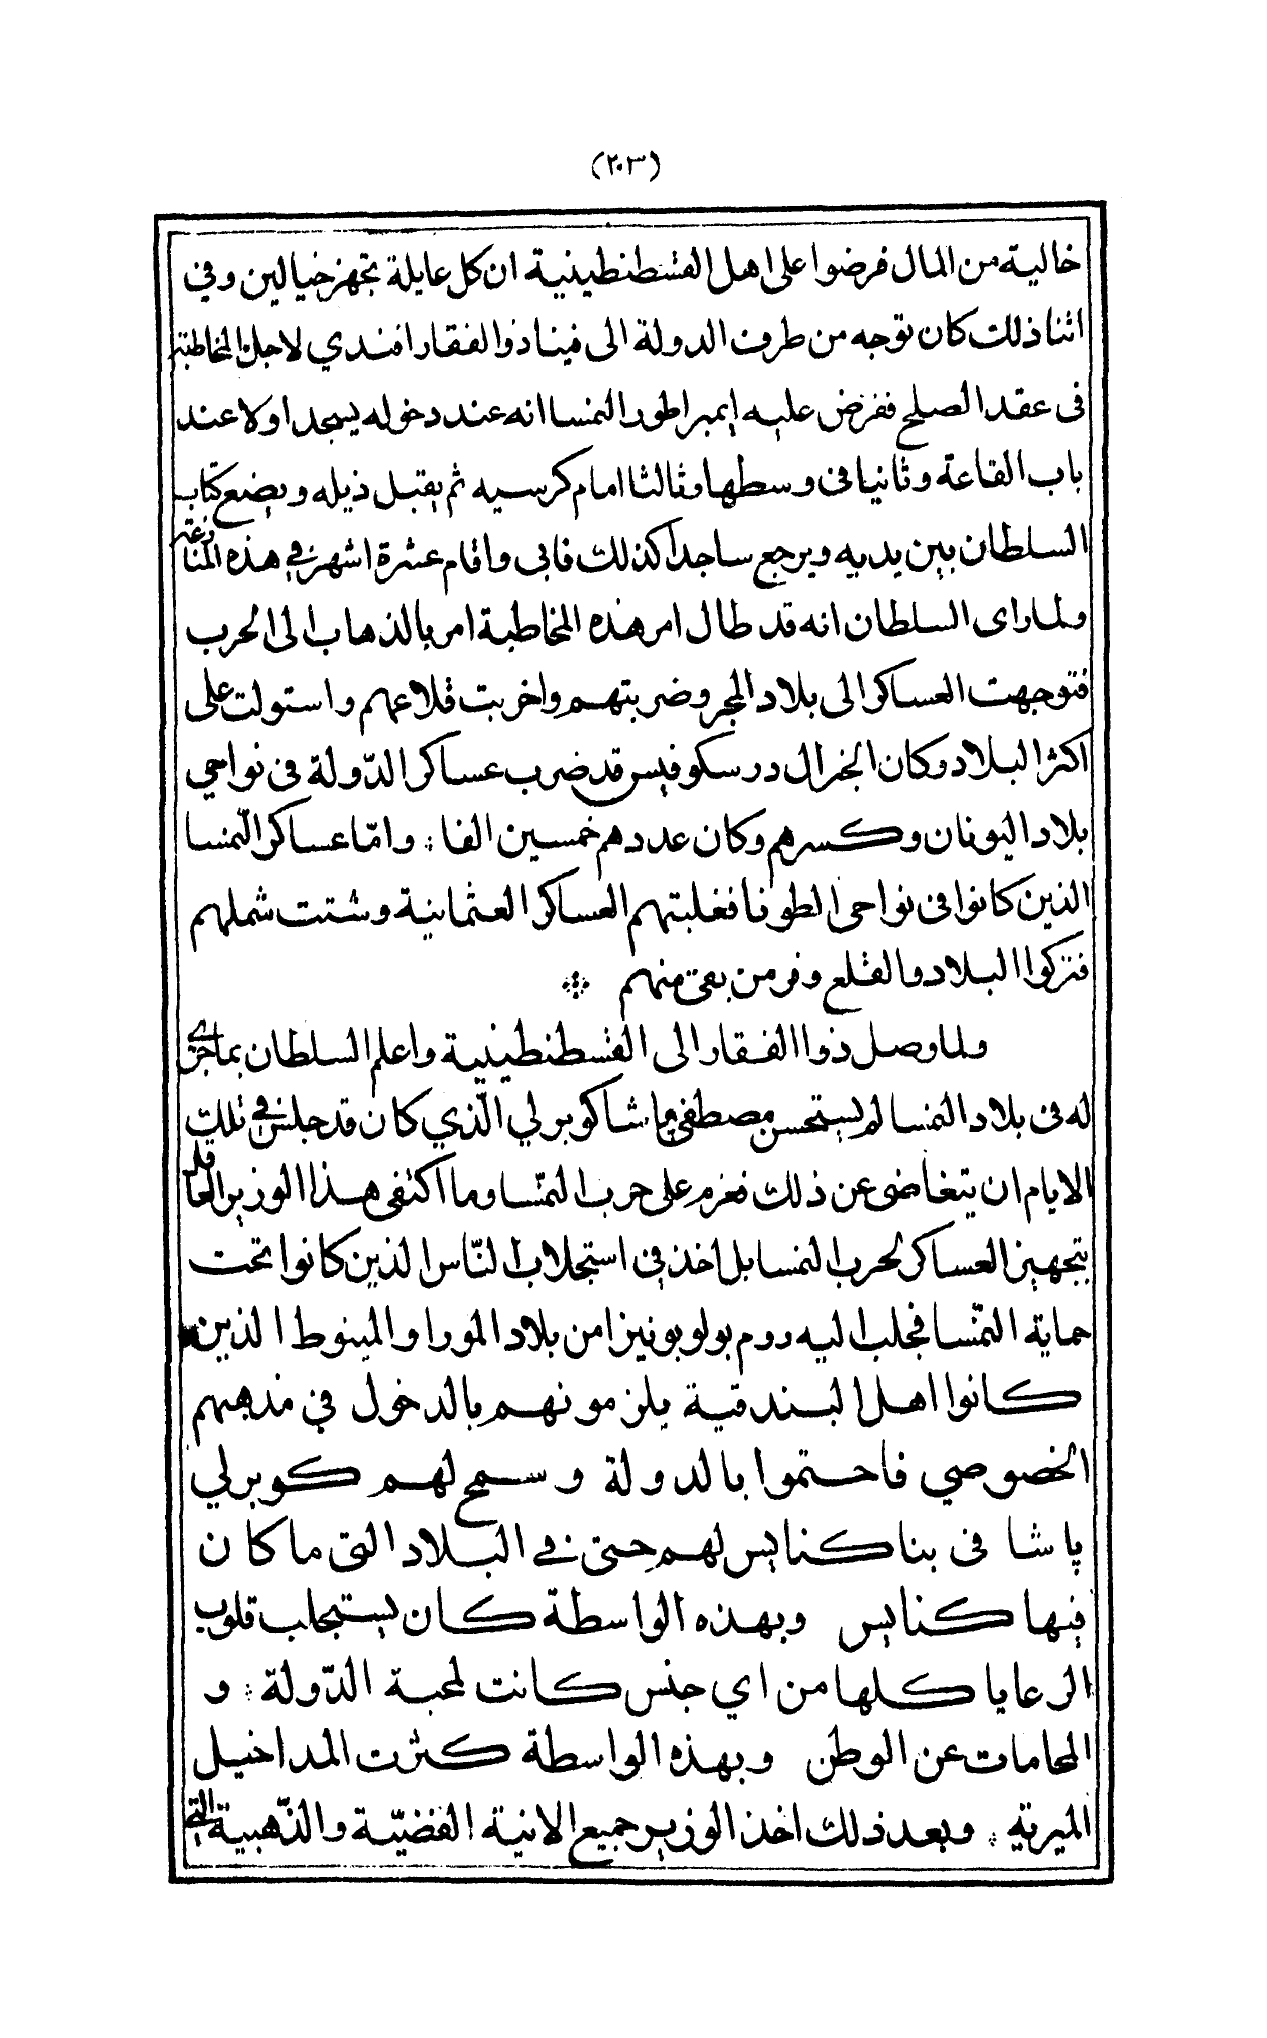 (٢٠٣)
خالية من المال فرضوا على اهل القسطنطينية ان كل عايلة تجهز خيالين وفي
اثنا ذلك كان توجه من طرف الدولة الى فينا ذو الفقار افندي لاجل المخاطبة
فى عقد الصلح ففرض عليه ايمبراطور النمسا انه عند دخوله يسجد اولا عند
باب القاعة وثانيا فى وسطها وثالثا امام كرسيه ثم يقبل ذيله ويضع كتاب
السلطان بين يديه ويرجع ساجدا كذلك فابى واقام عشرة اشهر في هذه المنازعة
ولما راى السلطان انه قد طال امر هذه المخاطبة امر بالذهاب الى الحرب
فتوجهت العساكر الى بلاد المجر وضربتهم واخربت قلاعهم واستولت على
اكثر البلاد وكان الجنرال درسكوفيس قد ضرب عساكر الدّولة فى نواحي
بلاد اليونان وكسرهم وكان عددهم خمسين الفا ؛ وامّا عساكر النّمسا
الذين كانوا فى نواحى الطونا فغلبتهم العساكر العثمانية وشتت شملهم
فتركوا البلاد والقلع وفر من بقى منهم
ولما وصل ذوا الفقار الى القسطنطينية واعلم السلطان بما جرى
له فى بلاد النمسا لم يستحسن مصطفى پاشا كوبرلي الّذي كان قد جلس في تلك
الايام ان يتغاضى عن ذلك فعزم على حرب النمّسا وما اكتفى هذا الوزير العاقل
بتجهيز العساكر لحرب النمسا بل اخذ في استجلاب النّاس الذين كانوا تحت
حماية النمّسا فجلب اليه روم بولوبونيزا من بلاد المورا والمينوط الذين
كانوا اهل البندقية يلزمونهم بالدخول في مذهبهم
الخصوصي فاحتموا بالدولة وسمح لهم كوبرلي
پاشا فى بنا كنايس لهم حتى في البلاد التى ما كان
فيها كنايس وبهذه الواسطة كان يستجلب قلوب
الرعايا كلها من اي جنس كانت لمحبة الدّولة ؛ و
المحامات عن الوطن وبهذه الواسطة كثرت المداخيل
الميرية ؛ وبعد ذلك اخذ الوزير جميع الانية الفضيّة والذّهبية التى